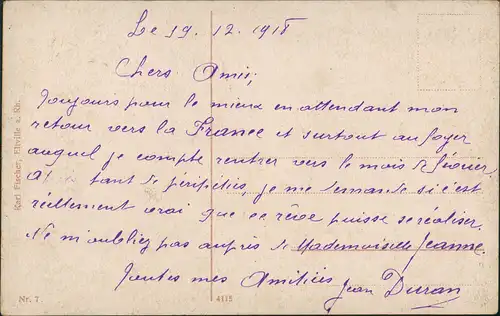 Le 19. 12. 1918
Chers Amis,
Toujours pour le mieux en attendant mon
retour vers la France et surtout au foyer
auquel je compte rentrer vers le mois de février.
tant de péripéties, je me demande si c'est
réellement vrai que ce rêve puisse se réaliser.
Ne m'oubliez pas auprès de Mademoiselle Jeanne.
Toutes mes Amitiés
Jean Duran
Karl Fischer, Eltville a. Rh.
Nr. 7
4115